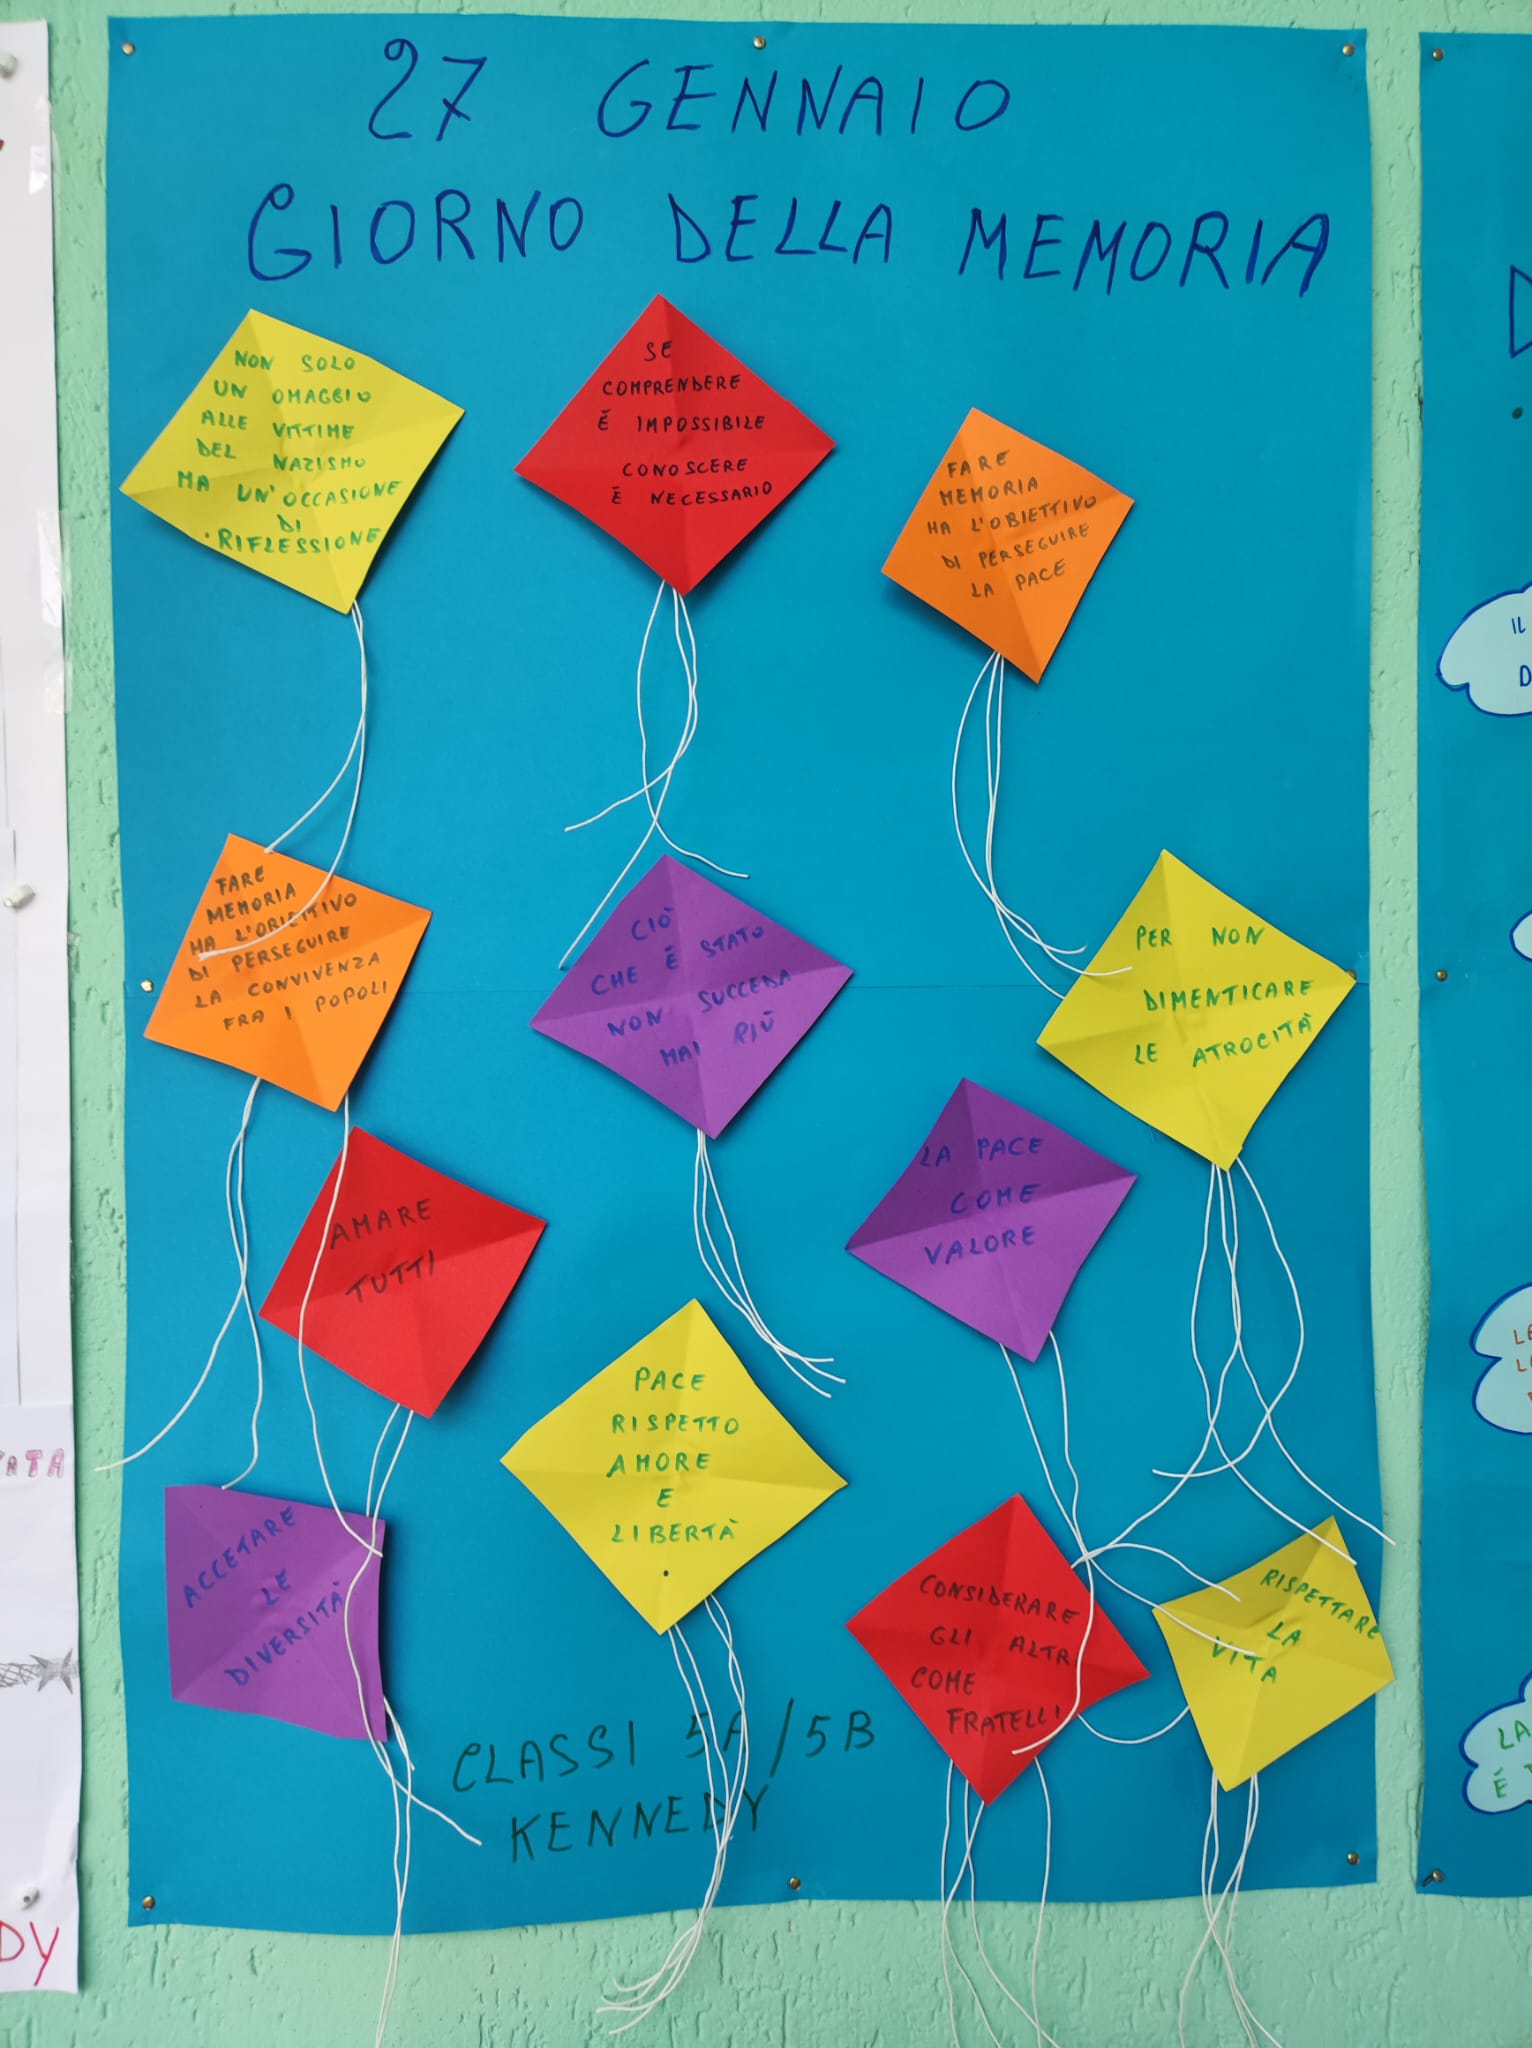 27 GENNAIO
GIORNO DELLA MEMORIA
NON SOLO
UN OMAGGIO
ALLE VITTIME
DEL NAZISMO
MA UN'OCCASIONE
DI
RIFLESSIONE
SE
COMPRENDERE
È IMPOSSIBILE
CONOSCERE
È NECESSARIO
FARE
MEMORIA
HA L'OBIETTIVO
DI PERSEGUIRE
LA PACE
FARE
MEMORIA
HA L'OBIETTIVO
DI PERSEGUIRE
LA CONVIVENZA
FRA I POPOLI
CIÒ
CHE È STATO
NON SUCCEDA
MAI PIÙ
PER NON
DIMENTICARE
LE ATROCITÀ
AMARE
TUTTI
LA PACE
COME
VALORE
PACE
RISPETTO
AMORE
E
LIBERTÀ
ACCETARE
LE
DIVERSITÀ
CONSIDERARE
GLI ALTRI
COME
FRATELLI
RISPETTARE
LA
VITA
CLASSI 5A/5B
KENNEDY
DY
IL
D
LA
È